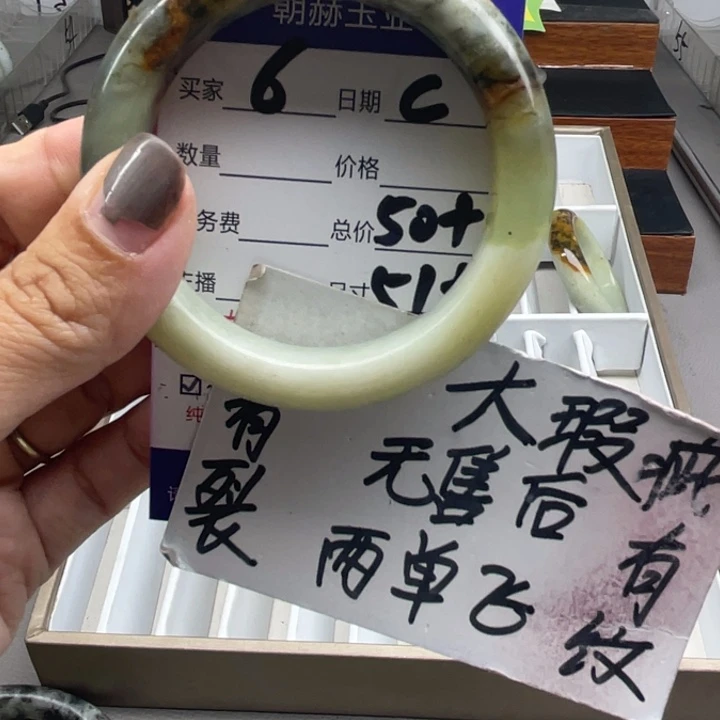 朝赫玉业
买家 6 日期 C
数量 价格
务费 总价 50+
主播 尺寸 51+
纯
有裂
大瑕疵
无售后
两单飞
有纹